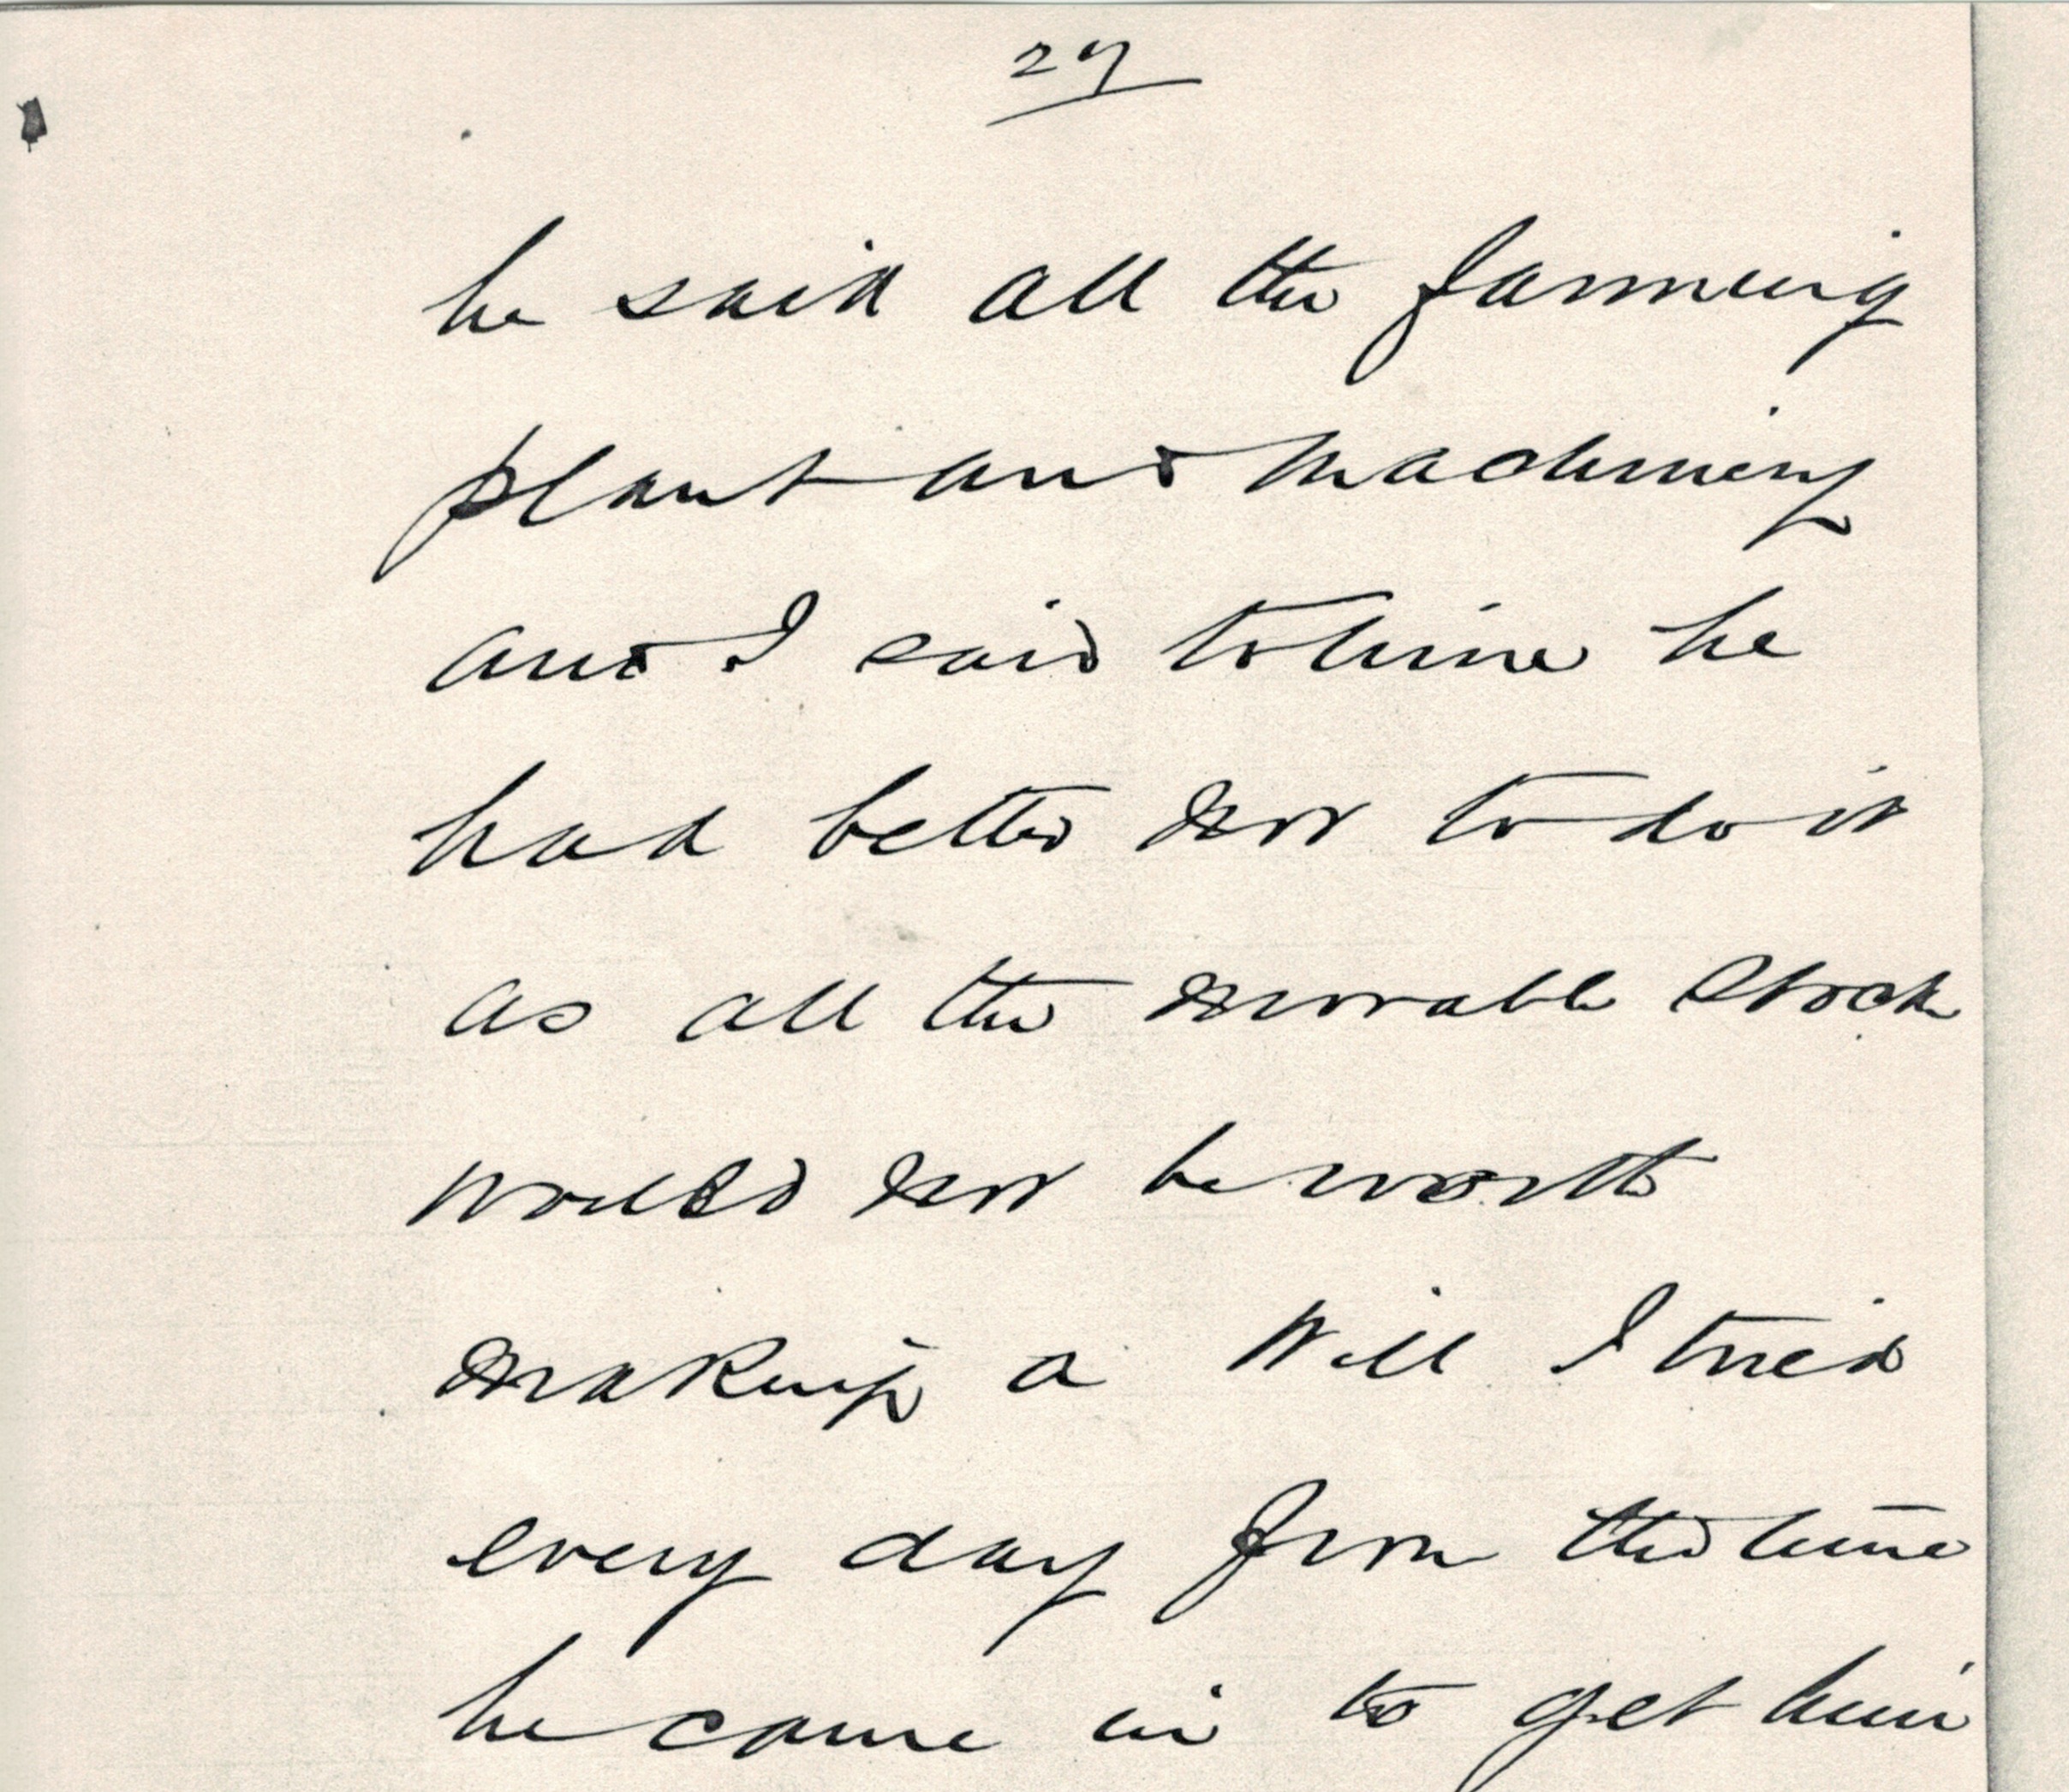 27
he said all the farming
plant and machinery
and I said to him he
had better not to do it
as all the movable stock
would not be worth
making a Will I tried
every day from the time
he came in to get him